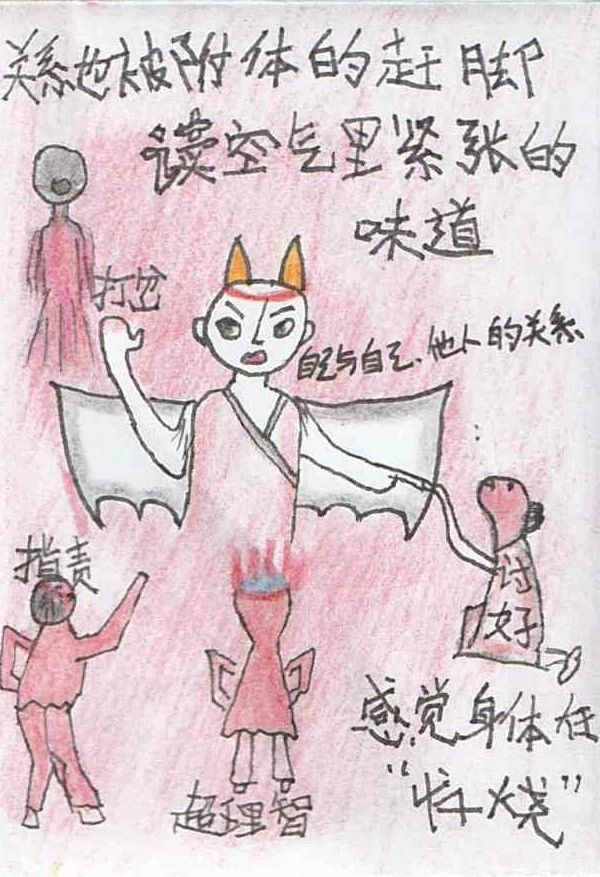 关系也被附体的赶脚
读空气里紧张的
味道
打岔
自己与自己、他人的关系
指责
讨
好
超理智
感觉身体在
烧”